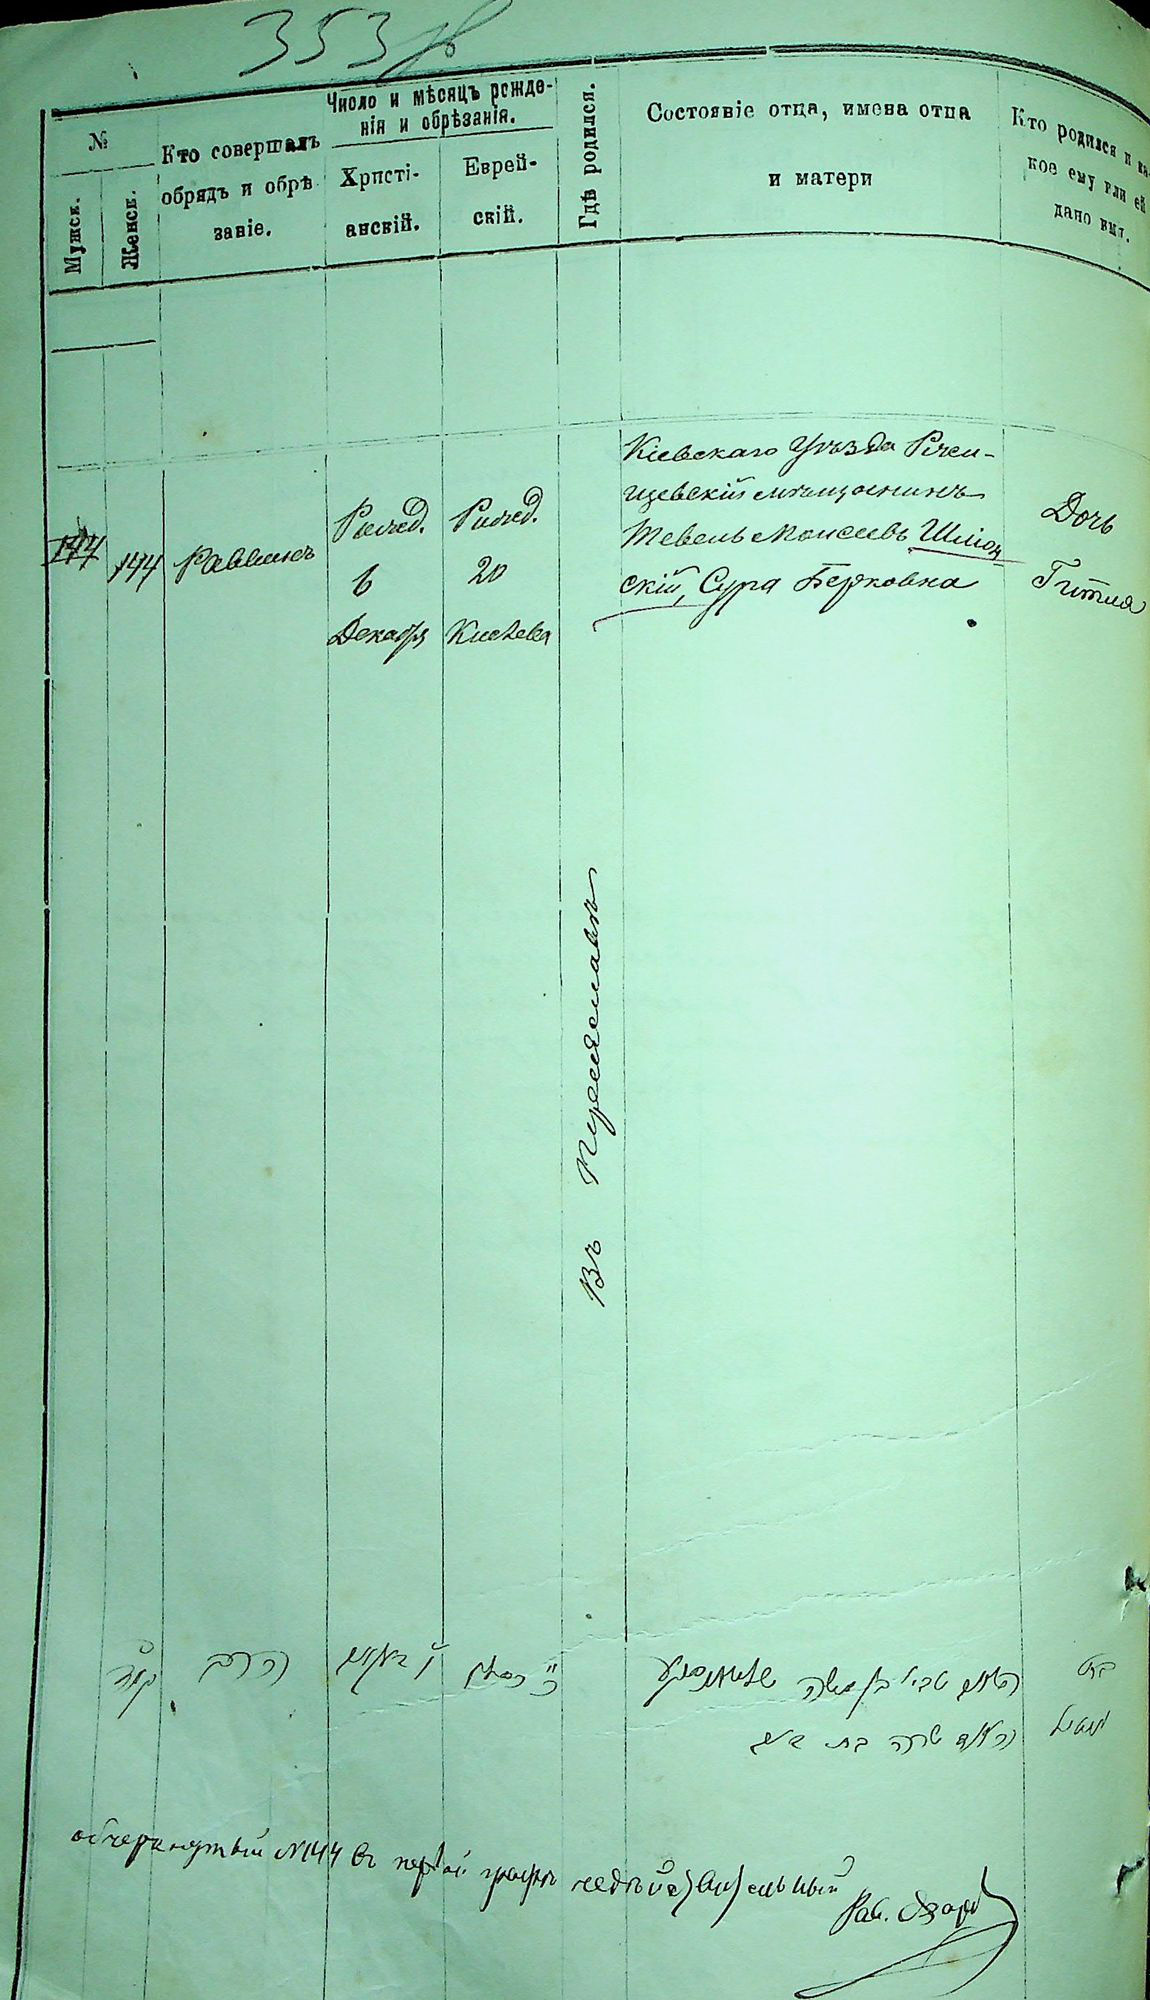 353
№
Мужск.
Женск.
Кто совершалъ
обрядъ и обрѣ
заніе.
Число и мѣсяцъ рожде-
нія и обрѣзанія.
Христі-
анскій.
Еврей-
скій.
Гдѣ родился.
Состояніе отца, имена отца
и матери
Кто родился и ка-
кое ему или ей
дано имя.
144
144
Раввинъ
Рожд.
6
Декабря
Рожд.
20
Кислева
Въ Переяславѣ
Кіевскаго Уѣзда Ржи-
щевскій мѣщанинъ
Тевель Моисеевъ
скій, Сура Берковна
Дочь
Гитля
הרב
האם שרה בת
בת
№ 144 въ первой графѣ недѣйствительный
Рав.